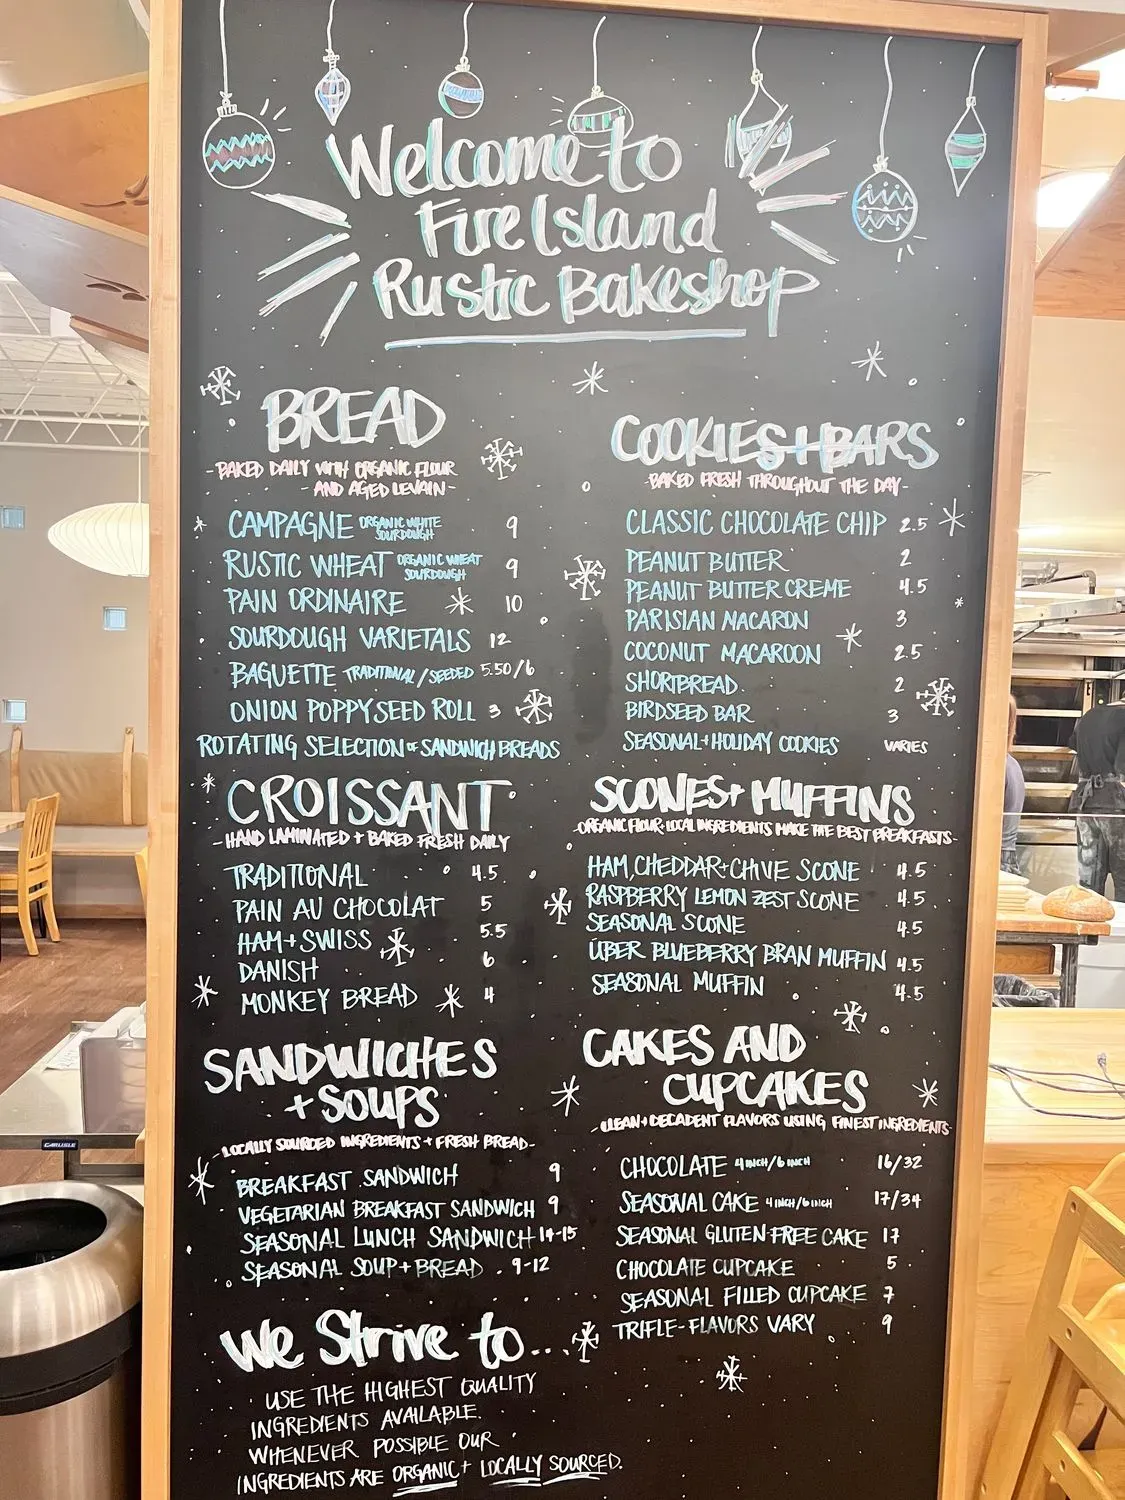 Welcome to
Fire Island
Rustic Bakeshop
BREAD
-BAKED DAILY WITH ORGANIC FLOUR
- AND AGED LEVAIN-
CAMPAGNE ORGANIC WHITE SOURDOUGH 9
RUSTIC WHEAT ORGANIC WHEAT SOURDOUGH 9
PAIN ORDINAIRE 10
SOURDOUGH VARIETALS 12
BAGUETTE TRADITIONAL/SEEDED 5.50/6
ONION POPPYSEED ROLL 3
ROTATING SELECTION OF SANDWICH BREADS
CROISSANT
-HAND LAMINATED + BAKED FRESH DAILY
TRADITIONAL 4.5
PAIN AU CHOCOLAT 5
HAM + SWISS 5.5
DANISH 6
MONKEY BREAD 4
SANDWICHES
+ SOUPS
-LOCALLY SOURCED INGREDIENTS + FRESH BREAD-
BREAKFAST SANDWICH 9
VEGETARIAN BREAKFAST SANDWICH 9
SEASONAL LUNCH SANDWICH 14-15
SEASONAL SOUP + BREAD 9-12
We Strive to...
USE THE HIGHEST QUALITY
INGREDIENTS AVAILABLE.
WHENEVER POSSIBLE OUR
INGREDIENTS ARE ORGANIC + LOCALLY SOURCED.
COOKIES + BARS
-BAKED FRESH THROUGHOUT THE DAY-
CLASSIC CHOCOLATE CHIP 2.5
PEANUT BUTTER 2
PEANUT BUTTER CREME 4.5
PARISIAN MACARON 3
COCONUT MACAROON 2.5
SHORTBREAD 2
BIRDSEED BAR 3
SEASONAL + HOLIDAY COOKIES VARIES
SCONES + MUFFINS
-ORGANIC FLOUR + LOCAL INGREDIENTS MAKE THE BEST BREAKFASTS-
HAM, CHEDDAR + CHIVE SCONE 4.5
RASPBERRY LEMON ZEST SCONE 4.5
SEASONAL SCONE 4.5
ÜBER BLUEBERRY BRAN MUFFIN 4.5
SEASONAL MUFFIN 4.5
CAKES AND
CUPCAKES
-CLEAN + DECADENT FLAVORS USING FINEST INGREDIENTS-
CHOCOLATE 4 INCH/6 INCH 16/32
SEASONAL CAKE 4 INCH/6 INCH 17/34
SEASONAL GLUTEN-FREE CAKE 17
CHOCOLATE CUPCAKE 5
SEASONAL FILLED CUPCAKE 7
TRIFLE-FLAVORS VARY 9
CARLISLE